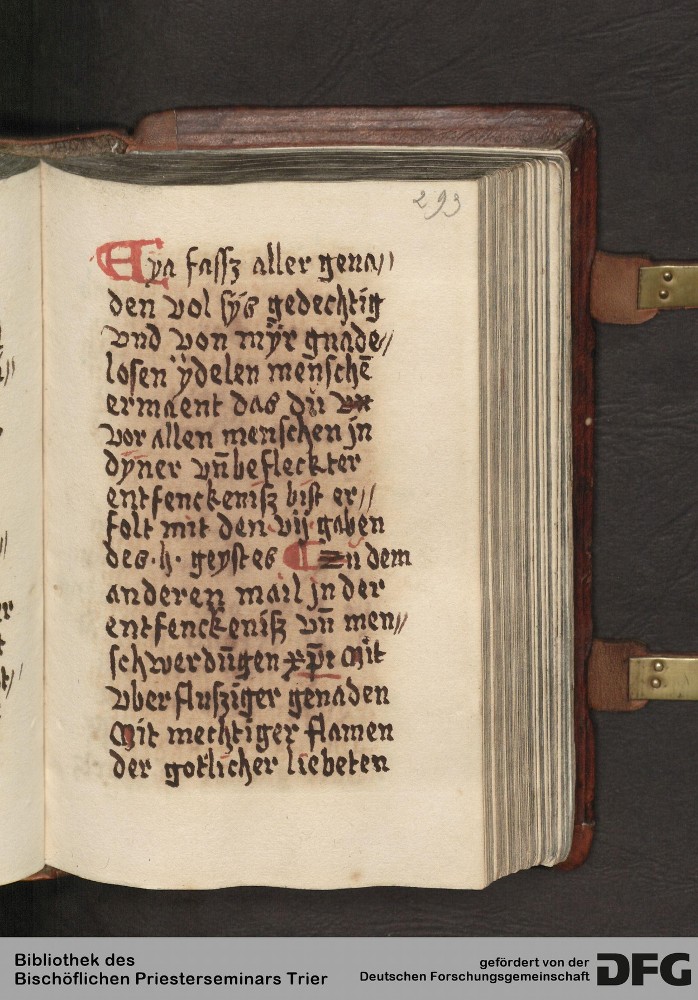 293
Eya fassz aller gena//
den vol sÿs gedechtig
vnd von mÿr gnade//
losen ÿdelen menschē
ermaent das du vn
vor allen menschen jn
dÿner vn̄befleckter
entfenckenisz bist er//
folt mit den vij gaben
des ·h· geystes Zu dem
anderen mail jn der
entfenckenisz vn̄ men//
schwerdūgen xp̄i Mit
vberflusziger genaden
Mit mechtiger flamen
der gotlicher liebeten
Bibliothek des
Bischöflichen Priesterseminars Trier
gefördert von der
Deutschen Forschungsgemeinschaft DFG